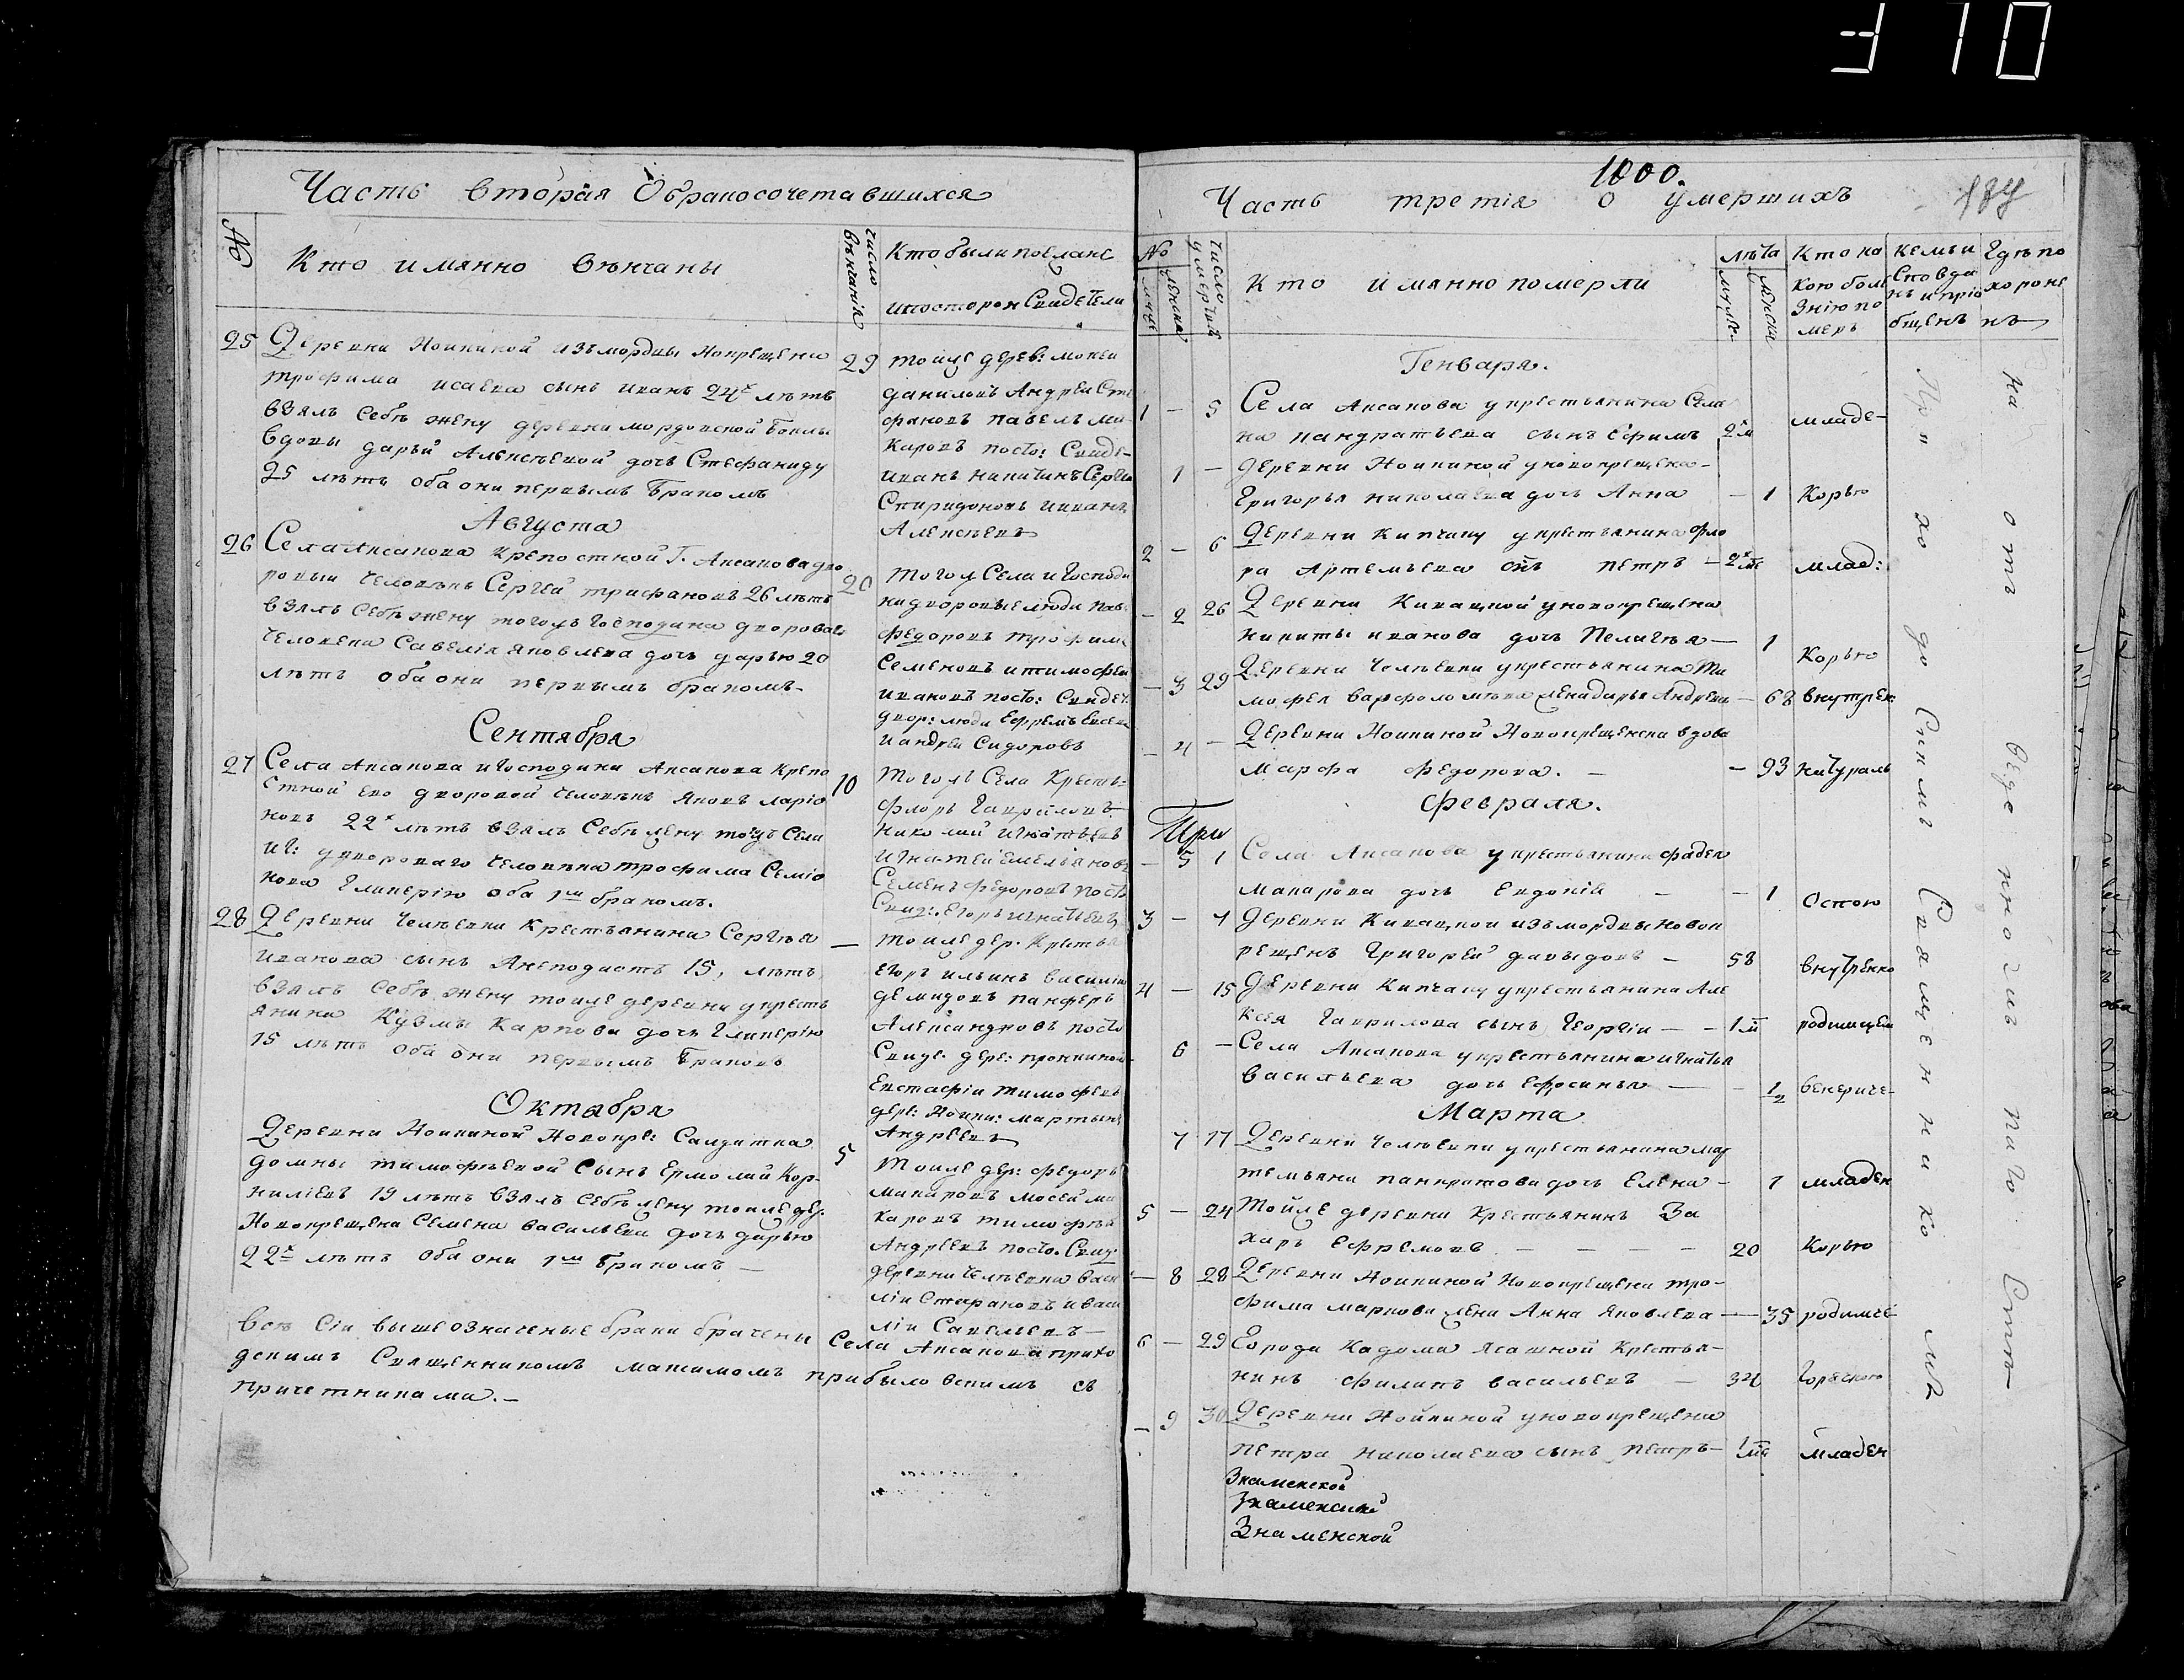 Часть вторая О бракосочетавшихся
№
Кто имянно венчаны
число венчанія
Кто были поезжане
и посторон Свидетели
25
Деревни Ноинкиной изъ мордвы Новрещена
Трофима исаева сынъ иванъ 24х летъ
взялъ Себѣ жену деревни мордовской
вдовы дарьи Алексѣевой дочь Стефаниду
25 лѣтъ оба они первымъ бракомъ
29
тойже дерев: мокеи
даниловъ Андреи Сте
фановъ павелъ ма
каровъ посто: Свиде-
иванъ никитинъ Сергеи
Спиридоновъ иванъ
Алексѣевъ
Августа
26
Села Аксакова крепостной Г. Аксакова дво
ровыи человѣкъ Сергеи трифановъ 26 лѣтъ
взялъ Себѣ жену тогожъ Господина дворова
человека Савелія яковлева дочь дарью 20
лѣтъ оба они первымъ бракомъ
20
тогожъ Села и Господи
на дворовые люди пав
федоровъ трофимъ
Семеновъ и тимофеи
ивановъ посто: Свидет
двор: люди Ефремъ
и андреи Сидоровъ
Сентября
27
Села Аксакова и Господина Аксакова крепо
стной ево дворовой человѣкъ яковъ ларіо
новъ 22х лѣтъ взялъ Себѣ жену тогожъ Села
и г: двороваго человека трофима Семіо
нова Гликерію оба 1м бракомъ.
10
тогожъ Села Кресть:
флоръ Гавриловъ
николаи игнатьевъ
игнатеи емельяновъ
Семенъ федоровъ посто
Свид: Егоръ игнатьевъ
28
Деревни Челпевки Крестьянина Сергѣя
иванова сынъ Анеподистъ 15, лѣтъ
взялъ Себѣ жену тойже деревни у кресть
янина Кузмы Карпова дочь Гликерію
15 лѣтъ оба они первымъ браковъ
—
тойже дер. Крестья
егоръ ильинъ василіи
демидовъ панферъ
Александровъ посто
Свиде. дере: пронкиной
Евстафіи тимофеевъ
дере: Ноинки: мартынъ
Андреевъ
Октября
Деревни Ноинкиной Новокре: Салдатка
домны тимофѣевой Сынъ Ермолай Кор-
ниліевъ 19 лѣтъ взялъ себѣ жену тойже дер:
Новокрещена Семена васильева дочь дарью
22х лѣтъ оба они 1м бракомъ —
5
тойже дер: федоръ
макаровъ мосеи ма
каровъ тимофѣи
Андреевъ посто. Свид.
деревни Челпевки васи
ліи Стефановъ и васи
ліи Савельевъ—
всѣ Сіи вышеозначеные браки брачены Села Аксакова прихо
дскимъ Священникомъ максимомъ прибыловскимъ съ
причетниками.—
1800.
Часть третія о умершихъ
184
№
муже
женска
число умерших
Кто имянно померли
лѣта
муже
женски
Кто ка
кою боле
знію по
меръ
Кемъ и
Споведа
нъ и прі
общенъ
Гдѣ по
хороне
нъ
Генваря.
1 — 5 Села Аксакова у крестьянина Семе
на пандратьева сынъ Ефимъ 2м младе-
1 — Деревни Ноинкиной у новокрещена-
Григорья николаева дочь Анна — 1 Корью
2 — 6 Деревни Кипчаку у крестьянина фло
ра Артемьева сынъ петръ — 2 млад:
— 2 26 Деревни Кивацкой у новокрещена
никиты иванова дочь Пелагѣя — 1 Корью
— 3 29 Деревни Челпевки у крестьянина ти
мофея варфоломѣева жена дарья Андреева — 68 внутрен
— 4 — Деревни Ноинкиной Новокрещенска вдова
марфа федорова. — — 93 натураль
Февраля.
— 5 1 Села Аксакова у крестьянина фадея
макарова дочь Евдокія — — 1 Оспою
3 — 4 Деревни Кивацкой изъ мордвы новок
рещенъ Григорей давыдовъ — 58 внутренно
4 — 15 Деревни Кипчаку у крестьянина Але
ксея Гаврилова сынъ Георгіи — — 1 родимцем
6 — Села Аксакова у крестьянина игнатья
васильева дочь ефросинья — — 1/2 венериче-
Марта
7 17 Деревни Челпевки у крестьянина мар
темьяна панкратова дочь Елена — 1 младен
5 — 24 Тойже деревни Крестьянинъ За
харъ Ефремовъ — — — — 20 Корью
— 8 28 Деревни Ноинкиной Новокрещена тро-
фима маркова жена Анна яковлева — 35 родимче
6 — 29 Города Кадома ясашной Крестья-
нинъ филипъ васильевъ — 34 Горячкою
— 9 30 Деревни Нойкиной у новокрещена
петра николаева сынъ петръ — 1 младен
Знаменской
Знаменской
Знаменской
Приходскимъ Священникомъ
на отведенномъ